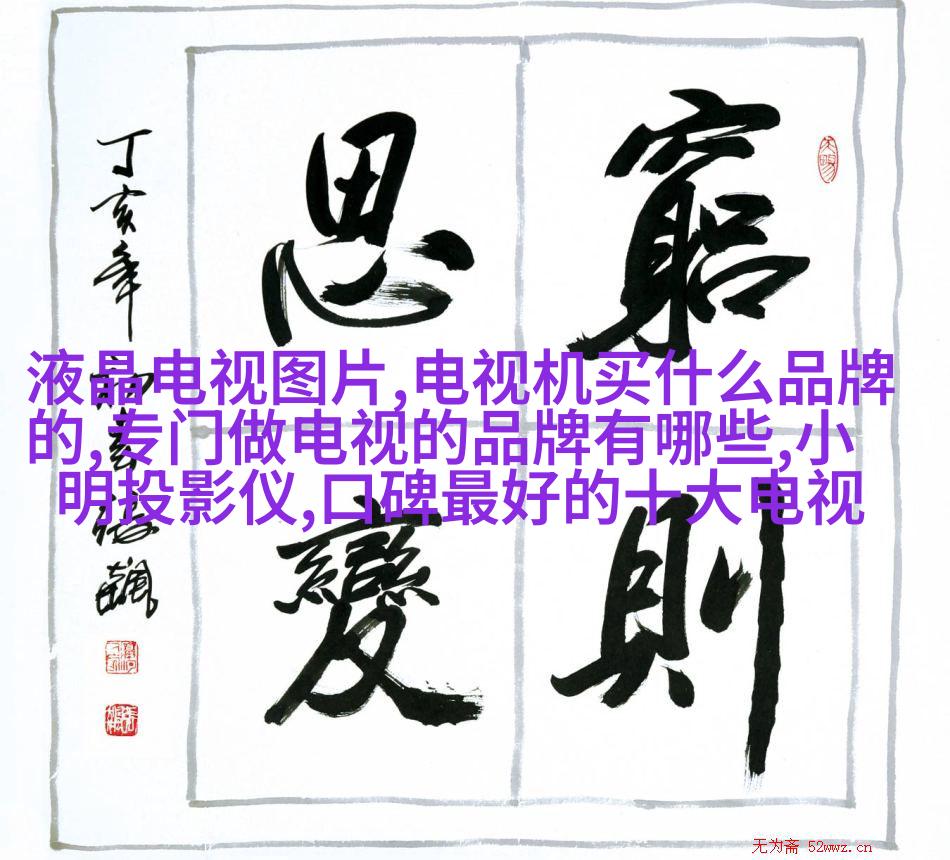 窮則
思變
丁亥年
液晶电视图片,电视机买什么品牌
的,专门做电视的品牌有哪些,小
明投影仪,口碑最好的十大电视
无为斋 52wwz.cn